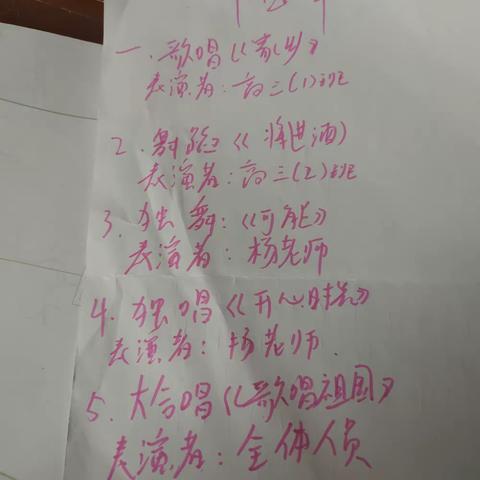 一.歌唱《青山》
表演者:高三(1)班
2.舞蹈《将进酒》
表演者:高三(2)班
3.独舞:《可能》
表演者:杨老师
4.独唱《开心时光》
表演者:杨老师.
5.大合唱《歌唱祖国》
表演者:全体人员